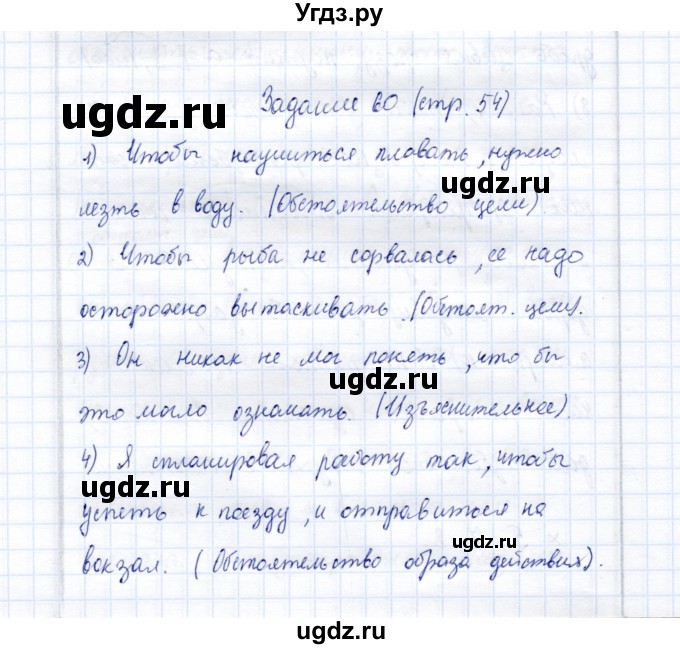 Угдз.ру
Задание 60 (стр. 54)
ugdz.ru
1) Чтобы научиться плавать, нужно
ugdz.ru
лезть в воду. (Обстоятельство цели)
2) Чтобы рыба не сорвалась, ее надо
осторожно вытаскивать. (Обстоят. цели).
3) Он никак не мог понять, что бы
ugdz.ru
это могло означать. (Изъяснительное).
4) Я спланировал работу так, чтобы
ugdz.ru
успеть к поезду, и отправиться на
ugdz.ru
вокзал. (Обстоятельство образа действия).
ugdz.ru